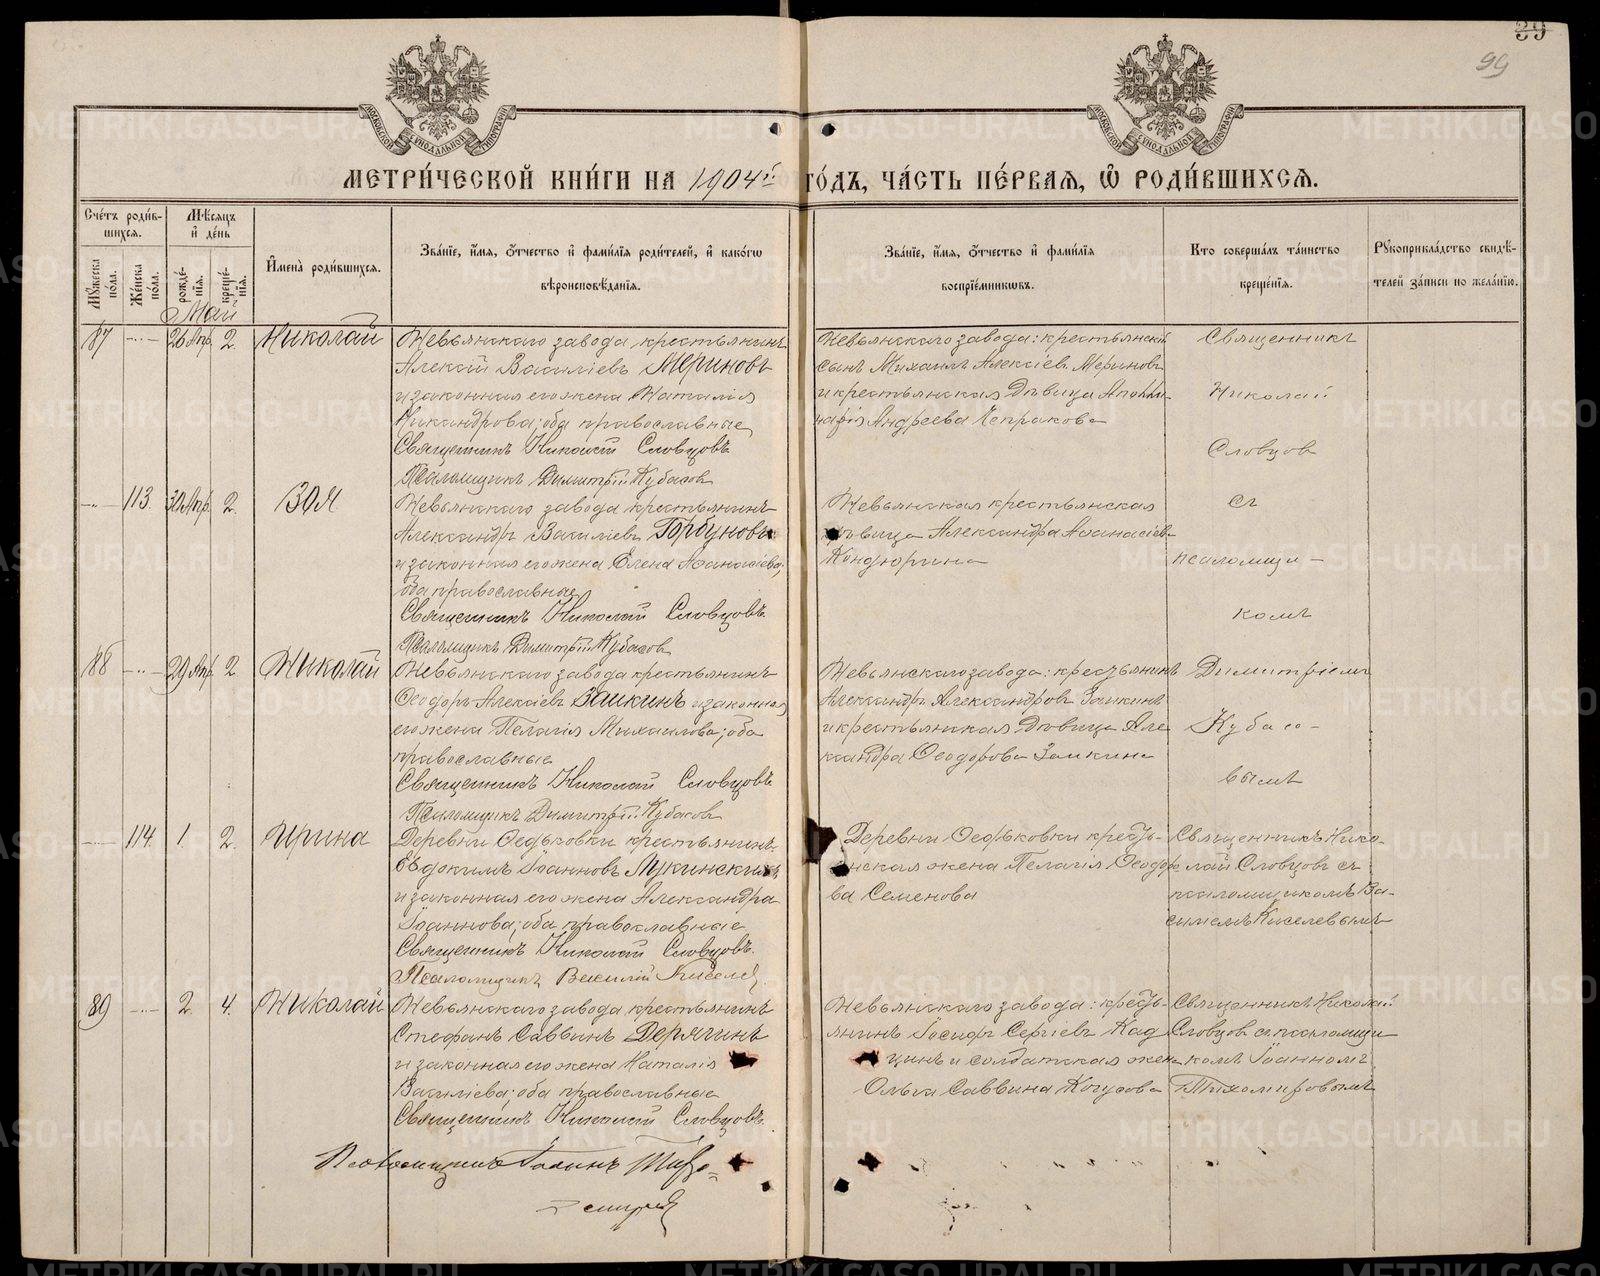 39
99
МЕТРИ́ЧЕСКОЙ КНИ́ГИ НА 1904й ГО́ДЪ, ЧА́СТЬ ПЕ́РВАЯ, Ѡ РОДИ́ВШИХСЯ.
Сче́тъ роди́в-
шихся.
Му́жеска по́ла.
Же́нска по́ла.
Мѣ́сяцъ
и де́нь
рожде́-
нїя.
креще́-
нїя.
И҆мена̀ роди́вшихся.
Зва́нїе, и҆́мя, ѻ҆́тчество и҆ фами́лїя роди́телей, и҆ како́гѡ
вѣроисповѣ́данїя.
Зва́нїе, и҆́мя, ѻ҆́тчество и҆ фами́лїя
воспрїе́мниковъ.
Кто соверша́лъ та́инство
креще́нїя.
Рꙋкоприкла́дство свидѣ́-
телей за́писи по жела́нїю.
Май
87 26 Апр. 2. Николай
Невьянскаго завода крестьянинъ
Алексій Васильевъ Мериновъ
и законная его жена Наталія
Никандрова; оба православные
Священникъ Николай Словцовъ
Псаломщикъ Димитрій Кубасов
Невьянскаго завода: крестьянскій
сынъ Михаилъ Алексіевъ Мериновъ
и крестьянская дѣвица Аполли-
нарія Андреева Чепракова
Священникъ
Николай
Словцов
113. 30 Апр. 2. Зоя
Невьянскаго завода крестьянинъ
Александръ Васильевъ Горбуновъ
и законная его жена Елена Аѳанасіева;
оба православные
Священникъ Николай Словцовъ.
Псаломщикъ Димитрій Кубасов
Невьянская крестьянская
дѣвица Александра Аѳанасіева
Кондюрина
съ
псаломщи-
комъ
88 29 Апр. 2 Николай
Невьянскаго завода крестьянинъ
Ѳеодоръ Алексіевъ Заикинъ и законная
его жена Пелагія Михаилова; оба
православные
Священникъ Николай Словцовъ
Псаломщикъ Димитрій Кубасов
Невьянскаго завода: крестьянинъ
Александръ Александровъ Заикинъ
и крестьянская дѣвица Але-
ксандра Ѳеодорова Заикина
Димитріемъ
Кубасо-
вымъ
114. 1. 2. Ирина
Деревни Ѳедьковки крестьянинъ
Евдокимъ Іоанновъ Лукинскихъ
и законная его жена Александра
Іоаннова; оба православные
Священникъ Николай Словцовъ.
Псаломщикъ Василій Киселев
Деревни Ѳедьковки кресть-
янская жена Пелагія Ѳеодоро-
ва Семенова
Священникъ Нико-
лай Словцовъ съ
псаломщикомъ Ва-
сильемъ Киселевымъ
89 2. 4. Николай
Невьянскаго завода крестьянинъ
Стефанъ Саввинъ Дерягинъ
и законная его жена Наталія
Василіева; оба православные
Священникъ Николай Словцовъ.
Псаломщикъ Іоаннъ Тихо-
мировъ
Невьянскаго завода: кресть-
янинъ Іосифъ Сергіевъ
и солдатская жена
Ольга Саввина
Священникъ Николай
Словцов съ псаломщи
комъ Іоанномъ
Тихомировымъ
METRIKI.GASO-URAL.RU